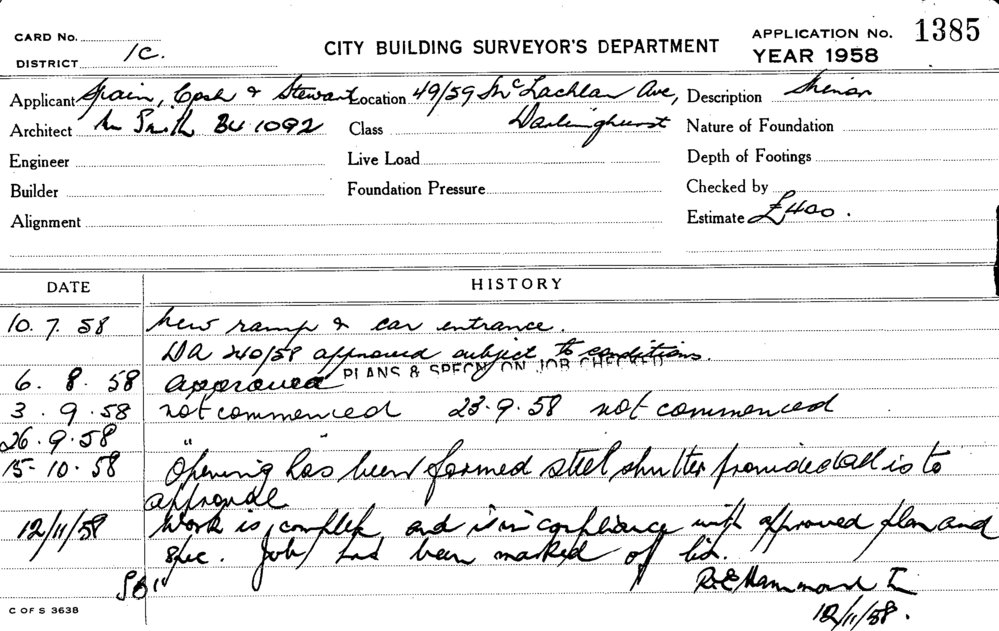 CARD No.
DISTRICT 1C.
CITY BUILDING SURVEYOR'S DEPARTMENT
APPLICATION No. 1385
YEAR 1958
Applicant Spain, Cosh & Stewart Location 49/59 McLachlan Ave, Description
Architect Smith BU 1092 Class Darlinghurst Nature of Foundation
Engineer Live Load Depth of Footings
Builder Foundation Pressure Checked by
Alignment Estimate £400.
DATE HISTORY
10. 7. 58 New ramp & car entrance.
DA 240/58 approved subject to conditions.
PLANS & SPECN ON JOB CHECKED
6. 8. 58 approved
3. 9. 58 not commenced 23.9.58 not commenced
26.9.58 " "
15-10.58 Opening has been formed steel shutter provided all is to
approval
12/11/58 Work is complete and is in compliance with approved plan and
spec. Job has been marked off list.
R.E Hammond
12/11/58.
C OF S 363B